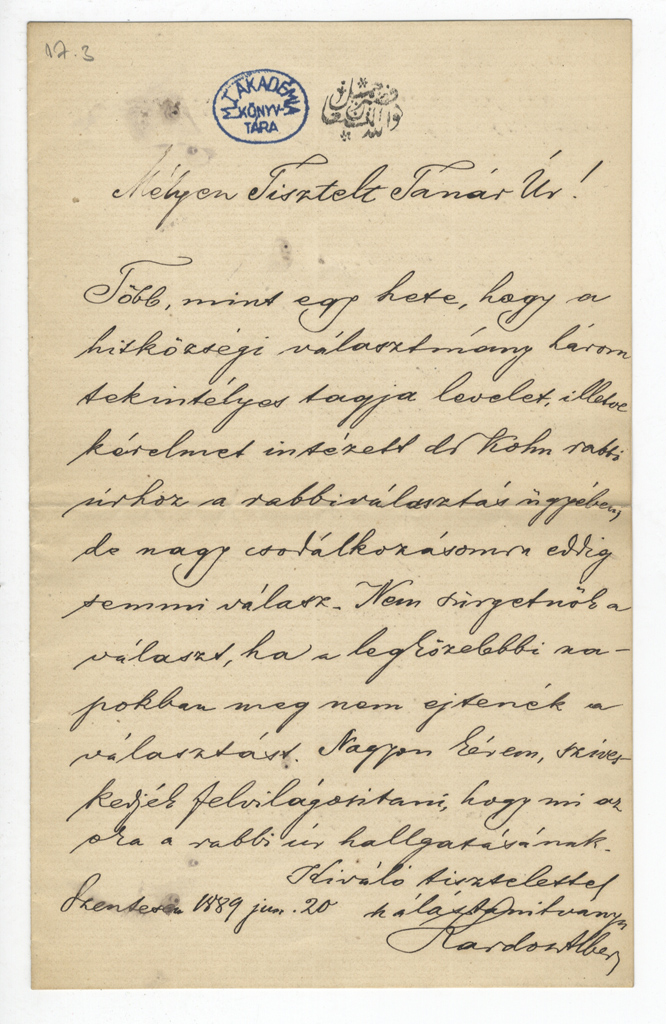 17.3
M. T. AKADÉMIA
KÖNYV-
TÁRA
Mélyen Tisztelt Tanár Úr!
Több, mint egy hete, hogy a
hitközségi választmány három
tekintélyes tagja levelet, illetve
kérelmet intézett dr Kohn rabbi
úrhoz a rabbiválasztás ügyében,
de nagy csodálkozásomra eddig
semmi válasz. Nem sürgetnők a
választ, ha a legközelebbi na-
pokban meg nem ejtenék a
választást. Nagyon kérem, szíves-
kedjék felvilágosítani, hogy mi az
oka a rabbi úr hallgatásának.
Kiváló tisztelettel
Szentesen 1889 jun. 20 hálás tanítványa
Kardos Albert